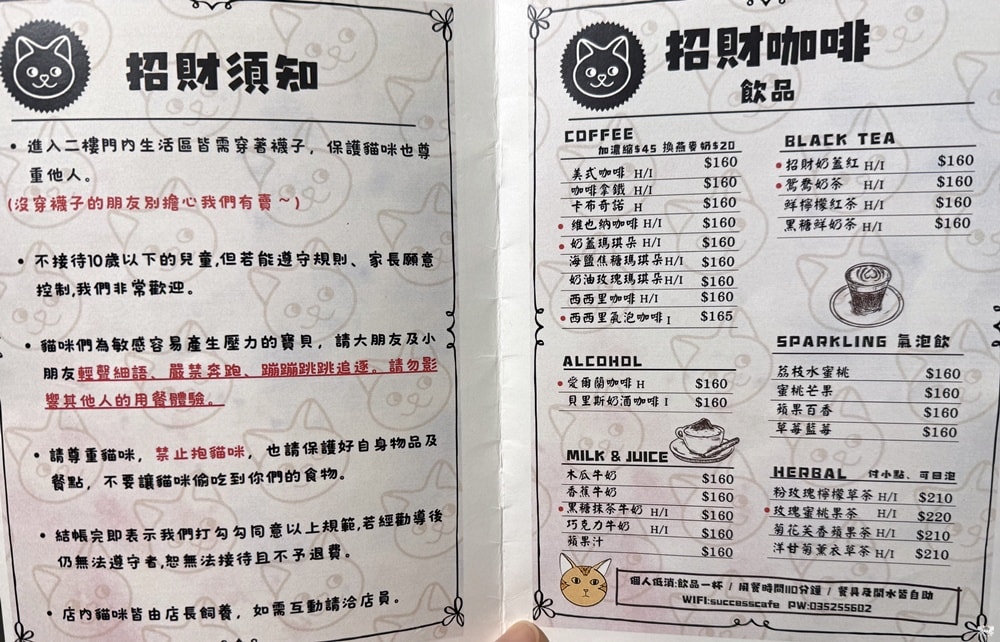 招財須知
• 進入二樓門內生活區皆需穿著襪子，保護貓咪也尊
重他人。
(沒穿襪子的朋友別擔心我們有賣～)
• 不接待10歲以下的兒童,但若能遵守規則、家長願意
控制,我們非常歡迎。
• 貓咪們為敏感容易產生壓力的寶貝，請大朋友及小
朋友輕聲細語、嚴禁奔跑、蹦蹦跳跳追逐。請勿影
響其他人的用餐體驗。
• 請尊重貓咪，禁止抱貓咪，也請保護好自身物品及
餐點，不要讓貓咪偷吃到你們的食物。
• 結帳完即表示我們打勾勾同意以上規範,若經勸導後
仍無法遵守者,恕無法接待且不予退費。
• 店內貓咪皆由店長飼養，如需互動請洽店員。
招財咖啡
飲品
COFFEE
加濃縮$45 換燕麥奶$20
美式咖啡 H/I $160
咖啡拿鐵 H/I $160
卡布奇諾 H $160
• 維也納咖啡 H/I $160
• 奶蓋瑪琪朵 H/I $160
海鹽焦糖瑪琪朵H/I $160
奶油玫瑰瑪琪朵H/I $160
西西里咖啡 H/I $160
• 西西里氣泡咖啡 I $165
ALCOHOL
• 愛爾蘭咖啡 H $160
貝里斯奶酒咖啡 I $160
MILK & JUICE
木瓜牛奶 $160
香蕉牛奶 $160
• 黑糖抹茶牛奶 H/I $160
巧克力牛奶 H/I $160
蘋果汁 $160
BLACK TEA
• 招財奶蓋紅 H/I $160
• 鴛鴦奶茶 H/I $160
鮮檸檬紅茶 H/I $160
黑糖鮮奶茶 H/I $160
SPARKLING 氣泡飲
荔枝水蜜桃 $160
蜜桃芒果 $160
蘋果百香 $160
草莓藍莓 $160
HERBAL 付小點、可回泡
粉玫瑰檸檬草茶 H/I $210
• 玫瑰蜜桃果茶 H/I $220
菊花芙香蘋果茶 H/I $210
洋甘菊薰衣草茶 H/I $210
個人低消:飲品一杯 / 用餐時間110分鐘 / 餐具及開水皆自助
WIFI:successcafe PW:035255602